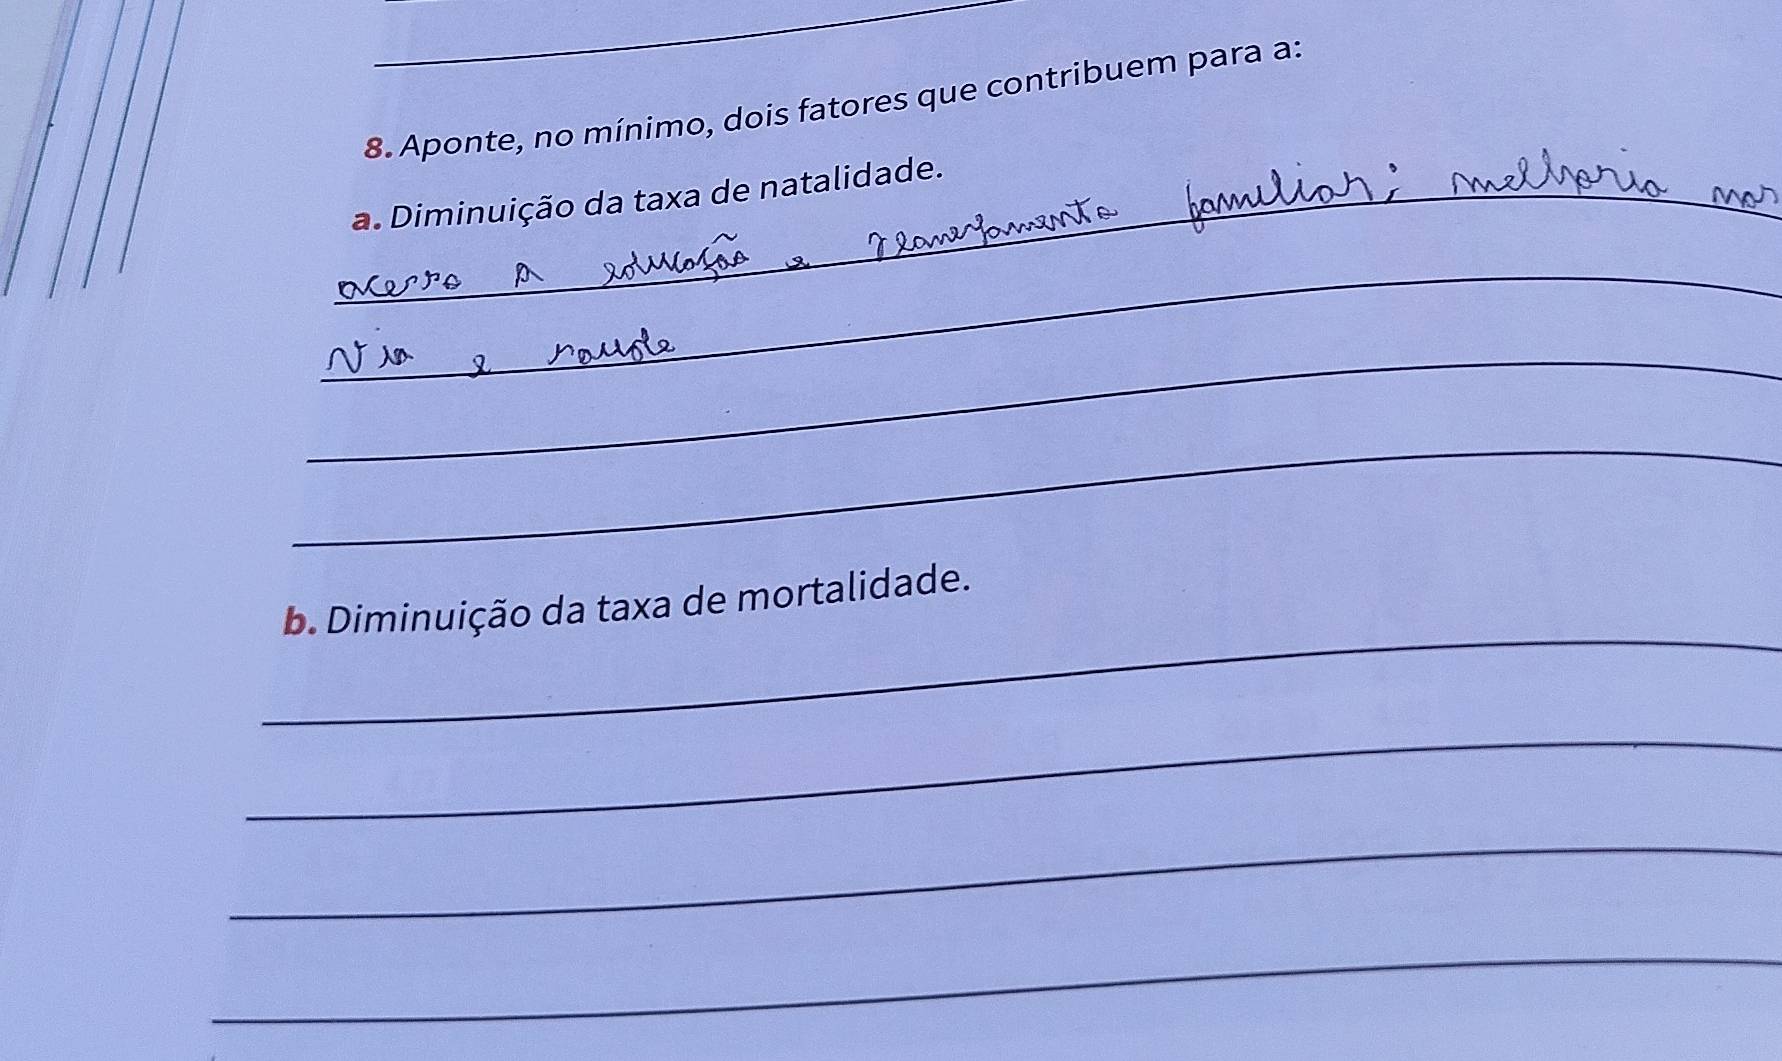 8. Aponte, no mínimo, dois fatores que contribuem para a:
a. Diminuição da taxa de natalidade.
acesso a educação e planejamento familiar; melhoria nas
via e saude
b. Diminuição da taxa de mortalidade.